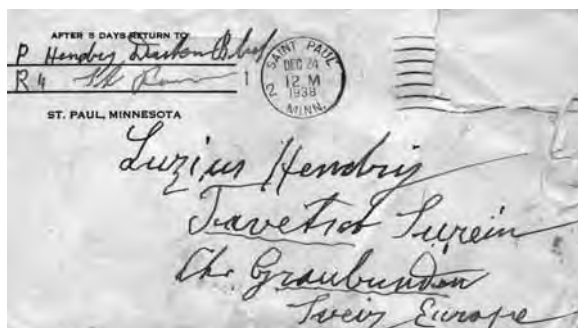 AFTER 5 DAYS RETURN TO
P Hendry
R 4
ST. PAUL, MINNESOTA
SAINT PAUL
DEC 24
12 M
1938
MINN.
2
1
Luzius Hendry
Tavetsch Surein
Graubunden
Sveiz Europe